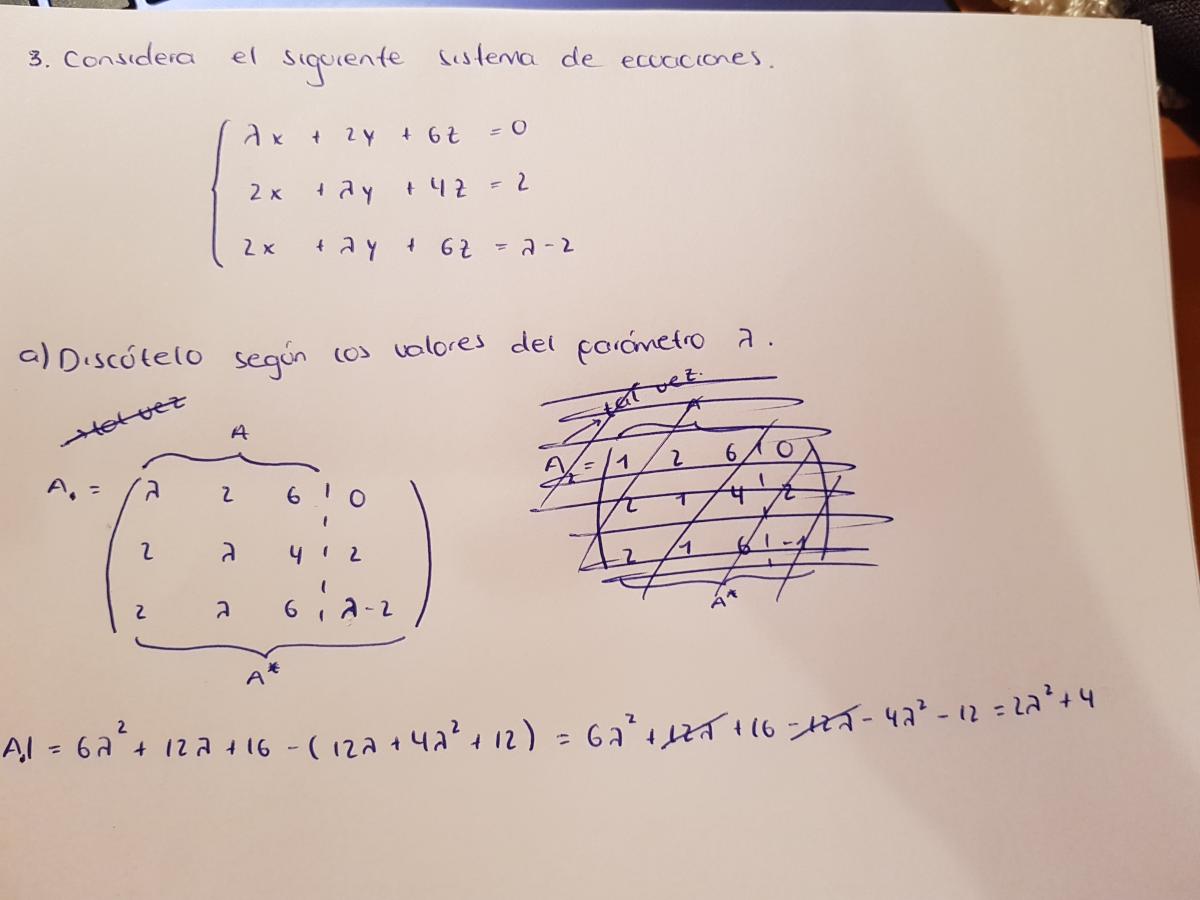 3. Considera el siguiente sistema de ecuaciones.
λx + 2y + 6z = 0
2x + λy + 4z = 2
2x + λy + 6z = λ-2
a) Discútelo según los valores del parámetro λ.
tal vez
tal vez.
A
A
A₁ = λ 2 6 ¦ 0
2 λ 4 ¦ 2
2 λ 6 ¦ λ-2
A*
A₂ = 1 2 6 ¦ 0
2 1 4 ¦ 2
2 1 6 ¦ -1
A*
A₁| = 6λ² + 12λ + 16 - (12λ + 4λ² + 12) = 6λ² + 12λ + 16 - 12λ - 4λ² - 12 = 2λ² + 4